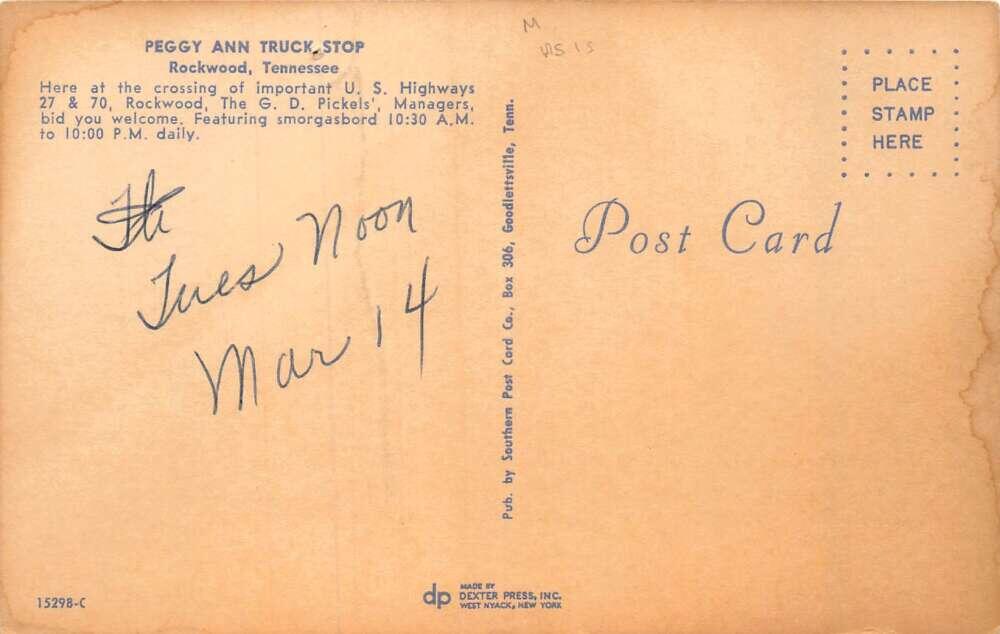 PEGGY ANN TRUCK STOP
Rockwood, Tennessee
Here at the crossing of important U. S. Highways
27 & 70, Rockwood, The G. D. Pickels', Managers,
bid you welcome. Featuring smorgasbord 10:30 A.M.
to 10:00 P.M. daily.
Tues Noon
Mar 14
15298-C
Pub. by Southern Post Card Co., Box 306, Goodlettsville, Tenn.
dp
MADE BY
DEXTER PRESS, INC.
WEST NYACK, NEW YORK
M
PLACE
STAMP
HERE
Post Card